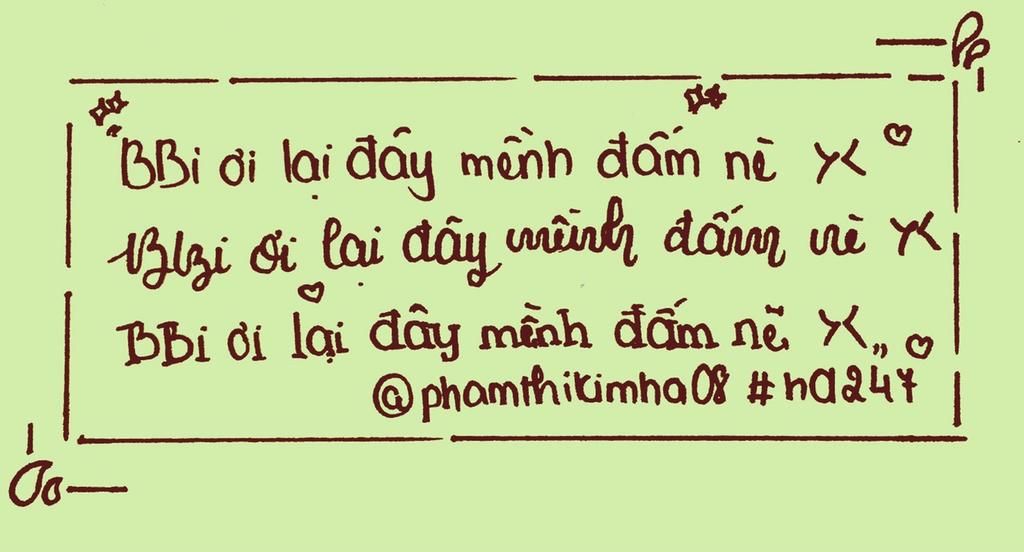 "BBi ơi lại đây mềnh đấm nè
BBi ơi lại đây mềnh đấm nè
BBi ơi lại đây mềnh đấm nẽ "
@phamthikimha08 #ha247